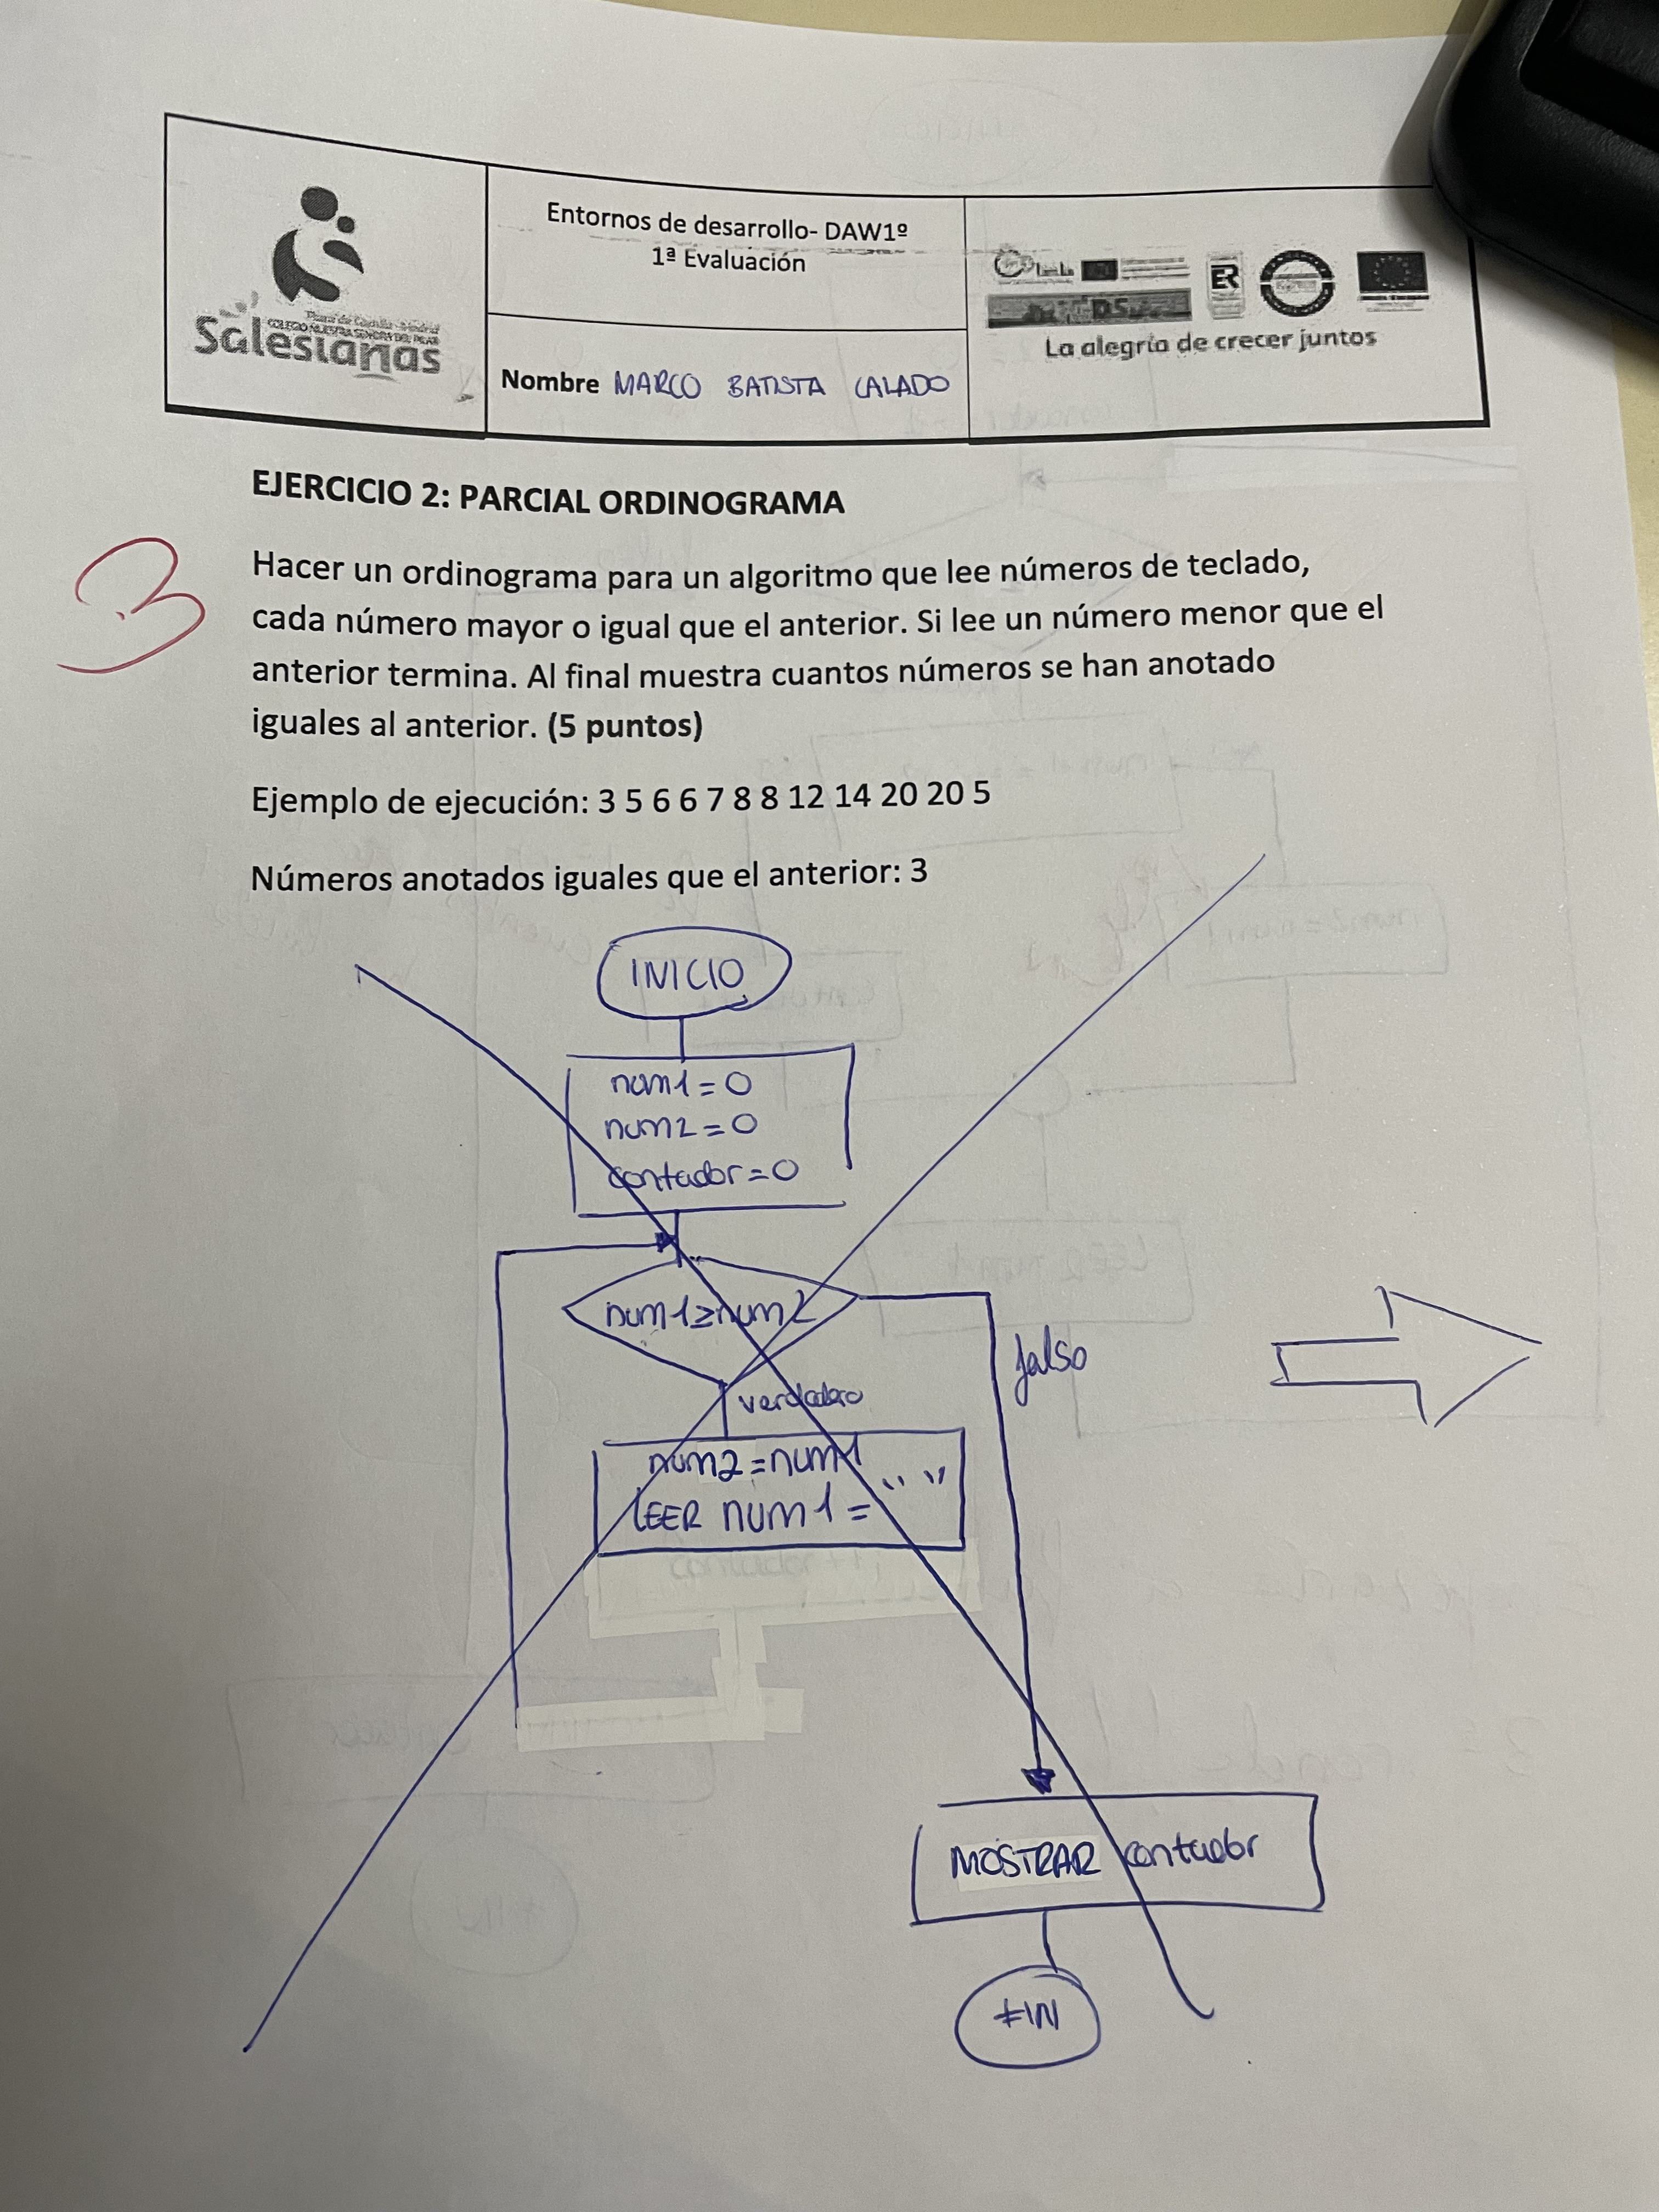 Entornos de desarrollo- DAW1º
1ª Evaluación
Plaza de Castilla - Madrid
COLEGIO NUESTRA SEÑORA DEL PILAR
Salesianas
Nombre MARCO BATISTA CALADO
La alegría de crecer juntos
EJERCICIO 2: PARCIAL ORDINOGRAMA
3
Hacer un ordinograma para un algoritmo que lee números de teclado,
cada número mayor o igual que el anterior. Si lee un número menor que el
anterior termina. Al final muestra cuantos números se han anotado
iguales al anterior. (5 puntos)
Ejemplo de ejecución: 3 5 6 6 7 8 8 12 14 20 20 5
Números anotados iguales que el anterior: 3
INICIO
num1=0
num2=0
contador=0
num1≥num2
falso
verdadero
num2=num1
LEER num1= " "
MOSTRAR contador
FIN